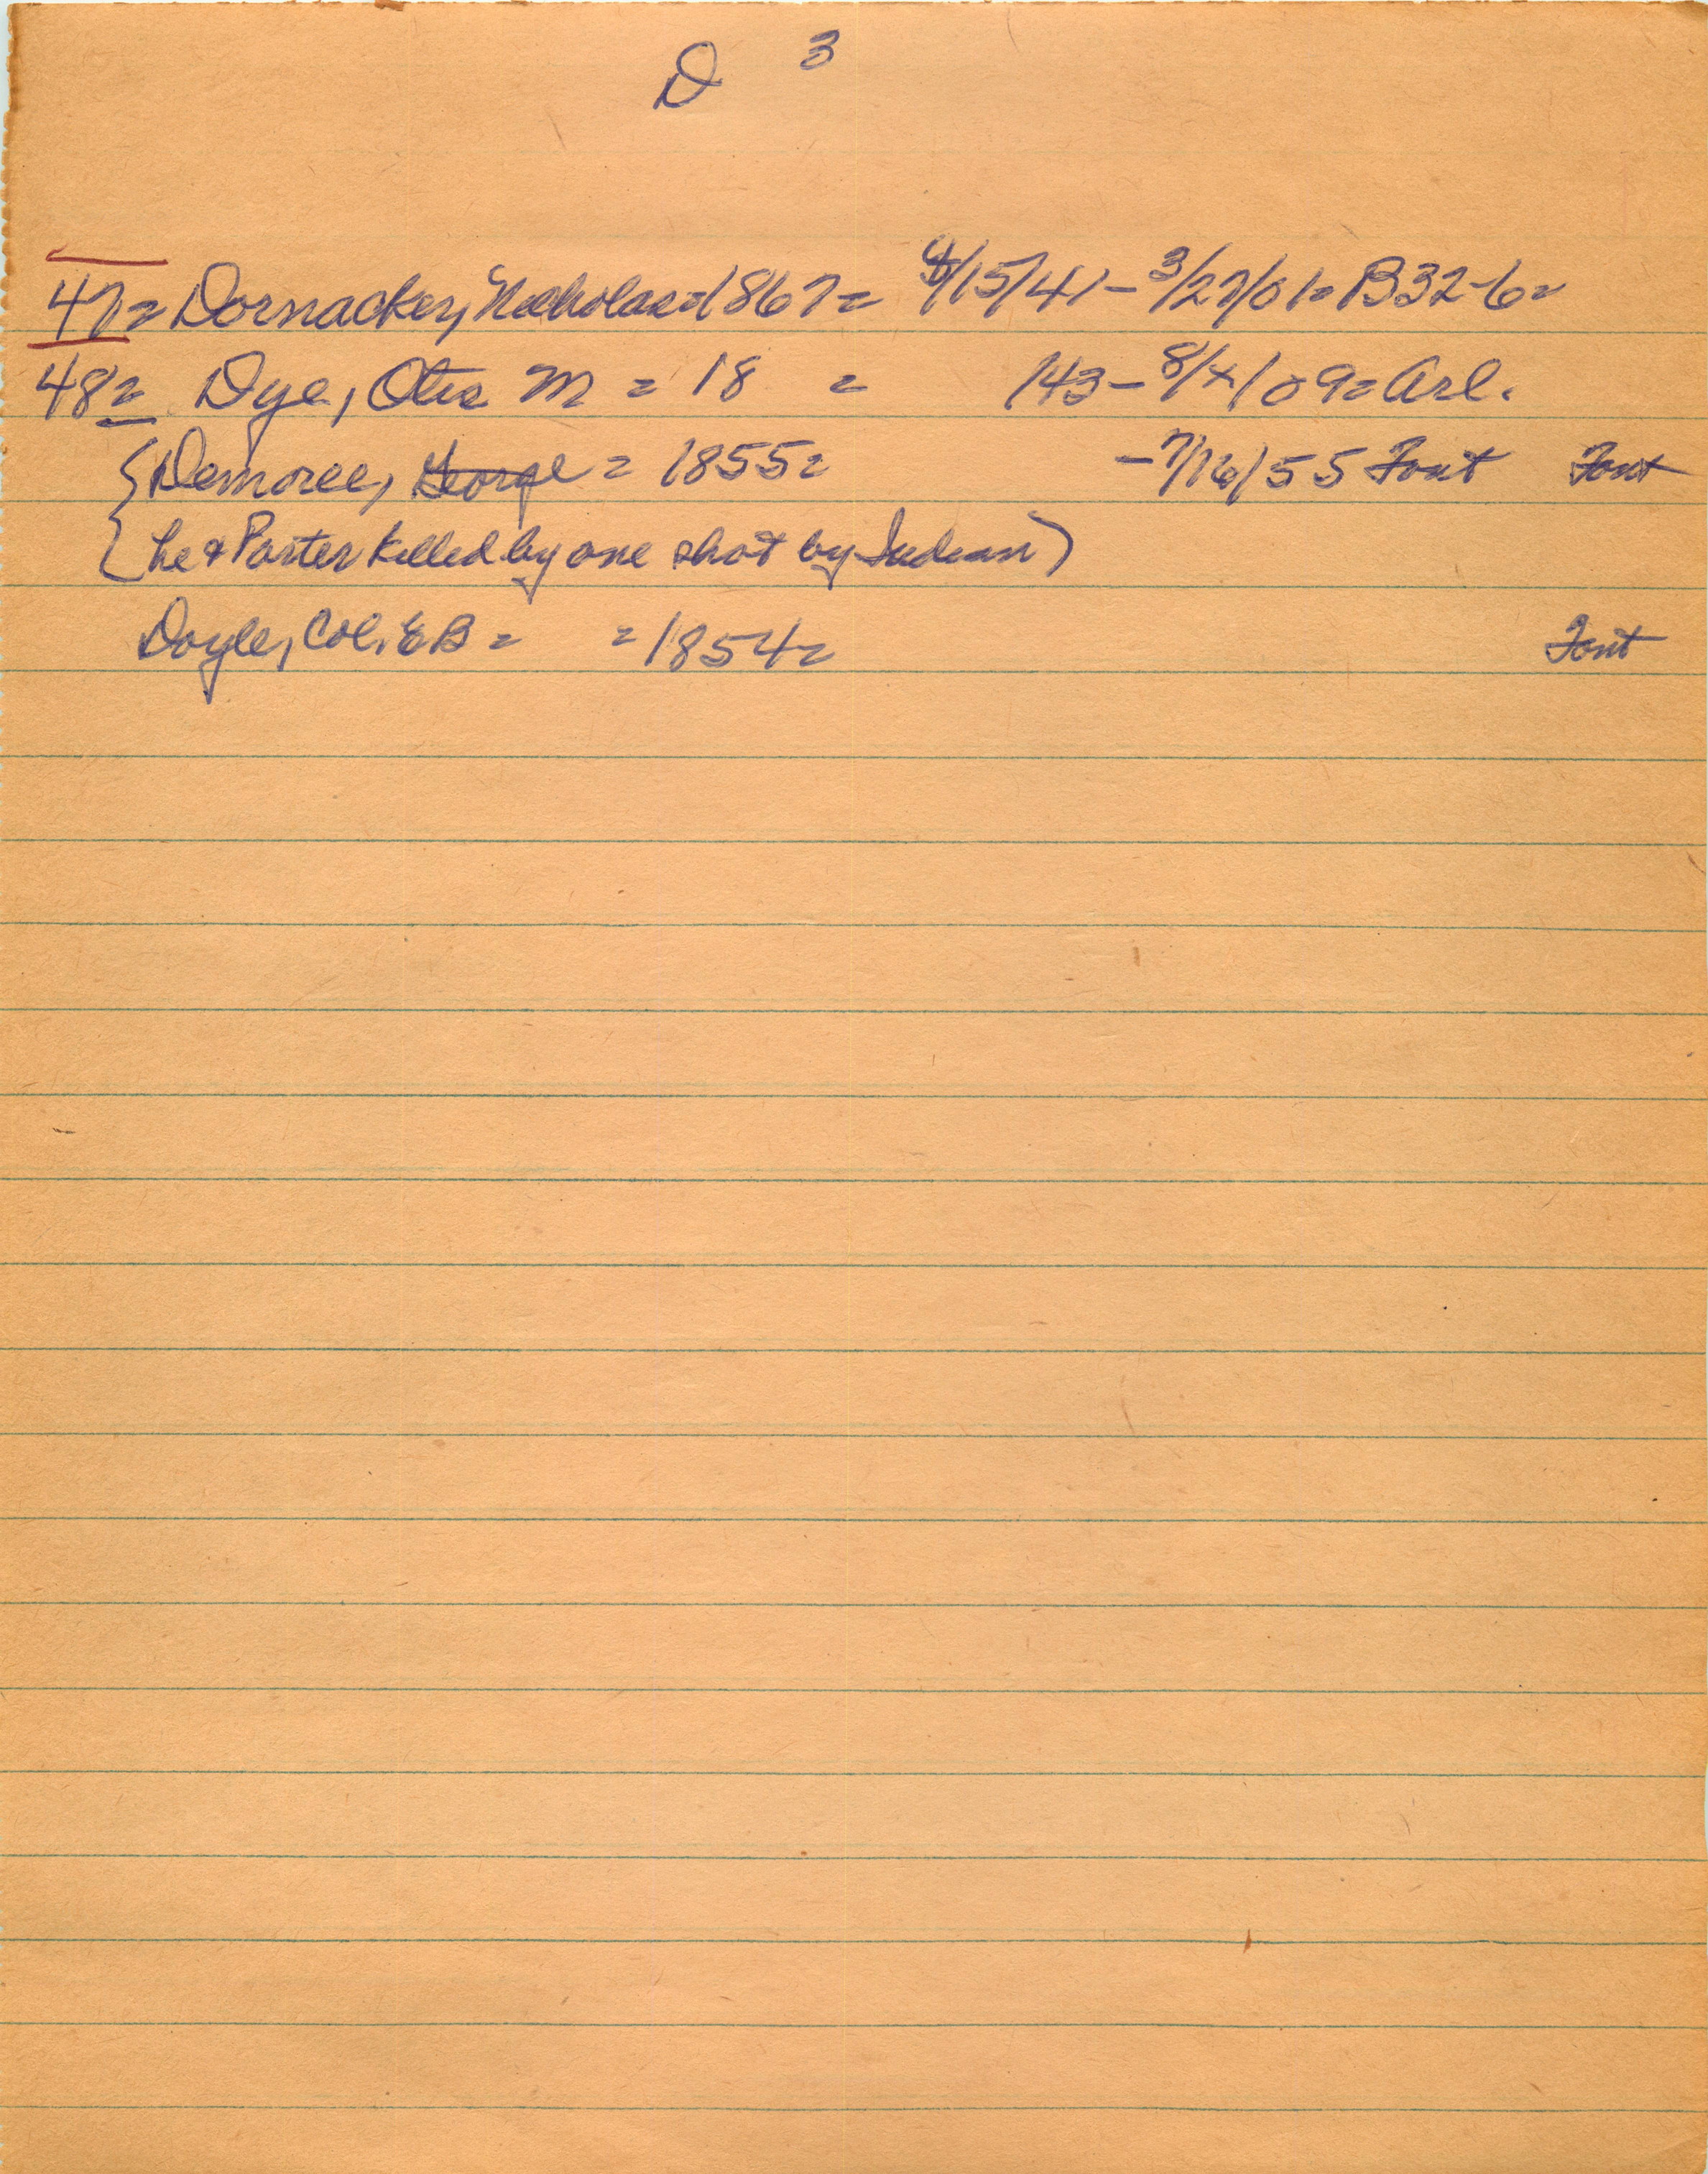 D 3
47= Dornacker, Nicholas=1867= 8/15/41-3/27/01= B32-6=
48= Dye, Otis M = 18 = 143-8/x/09=Arl.
{Demoree, George = 1855= -7/16/55 Font Font
{he & Porter killed by one shot by Indian)
Doyle, Col. E B = =1854= Font